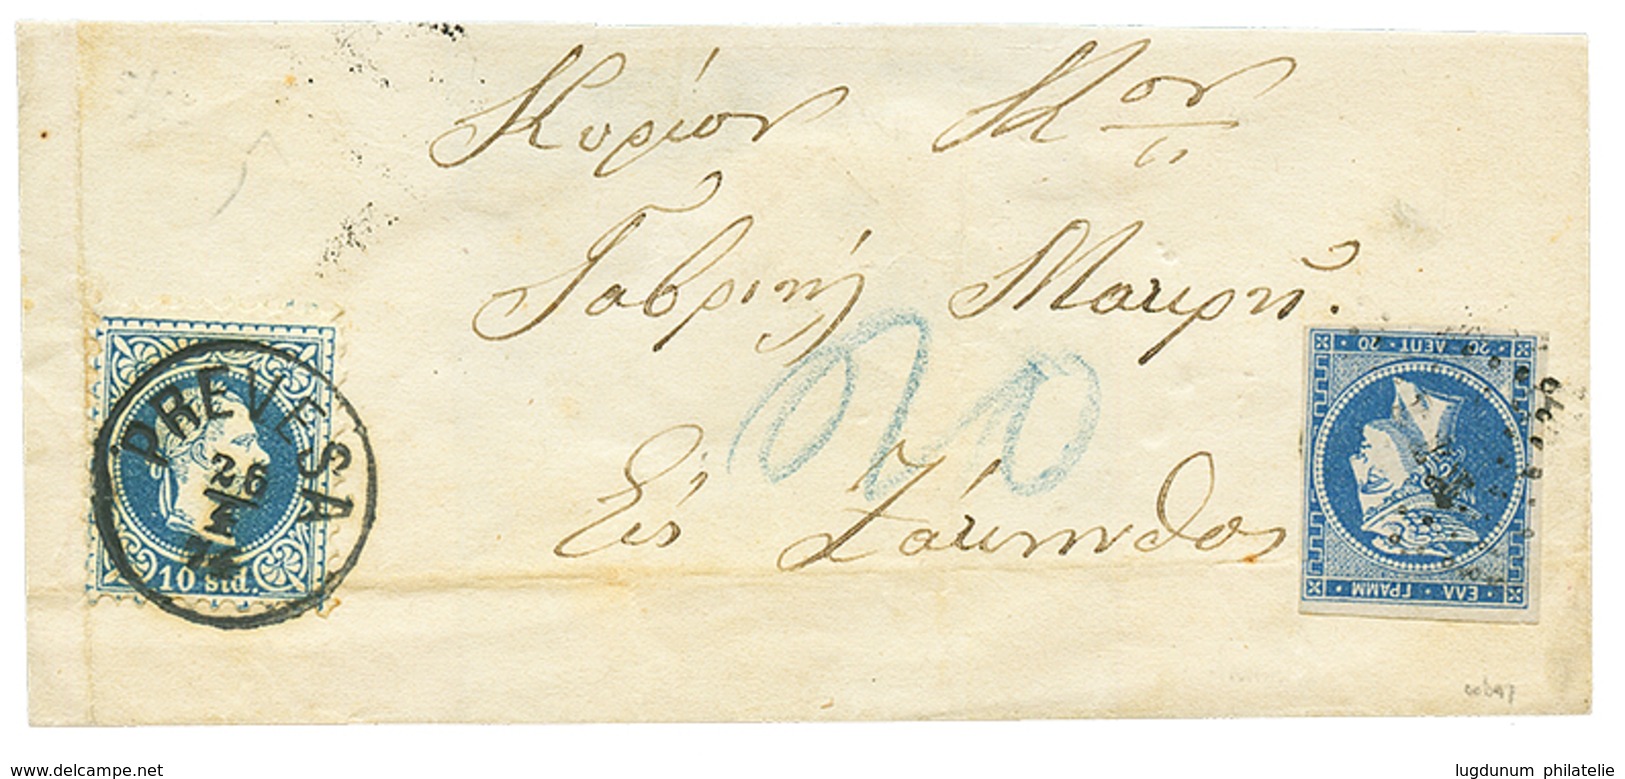 Κυρίον Κ^ον
Γαβριήλ Μαυρη.
Εἰς Ζάκυνθον
20
PREVESA
26
10 sld.
20 · ΛΕΠΤ · 20
ΕΛΛ · ΓΡΑΜΜ
www.delcampe.net
lugdunum philatelie